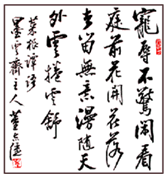 寵辱不驚閒看
庭前花開花落
去留無意漫隨天
外雲捲雲舒
菜根譚語
墨雲齋主人